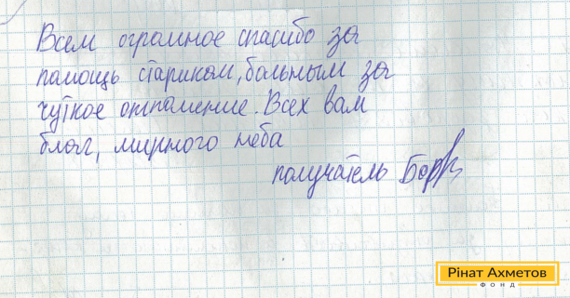 Всем огромное спасибо за
помощь стариком, больным за
чуткое отношение. Всех вам
благ, мирного неба
получатель
Рінат Ахметов
ФОНД